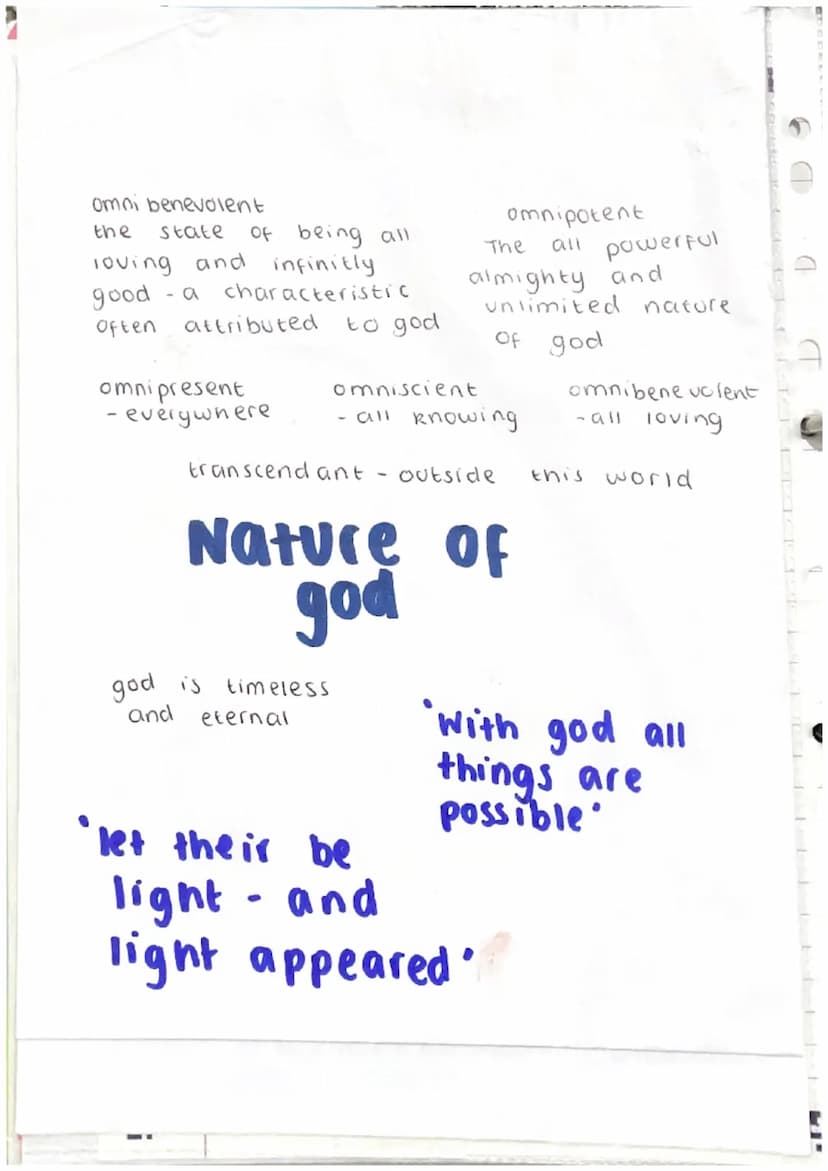 omnibenevolent
the state of being all
loving and infinitly
good - a characteristic
often attributed to god
omnipotent
The all powerful
almighty and
unlimited nature
of god
omnipresent
- everywhere
omniscient
- all knowing
omnibenevolent
- all loving
transcendant - outside this world
Nature of
god
god is timeless
and eternal
'With god all
things are
possible'
'let their be
light - and
light appeared'